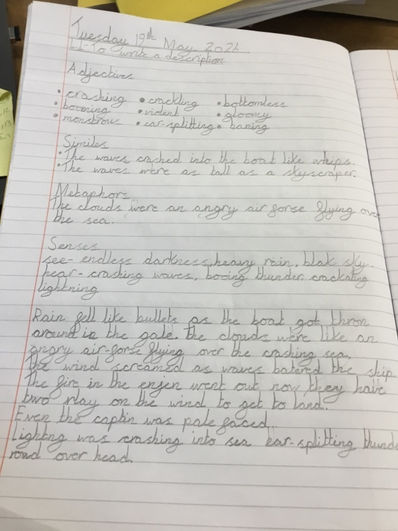 Tuesday 19th May 2026
L-To write a description
Adjectives
• crashing • crackling • bottomless
• booming • violent • gloomy
• monstrous • ear-splitting •
Similes
• The waves crashed into the boat like whips.
• The waves were as tall as a skyscraper.
Metaphors
The clouds were an angry air forse flying over
the sea.
Senses
see- endless darkness, heavy rain, blak sky.
hear- crashing waves, booing thunder
lightning
Rain fell like bullets as the boat got thron
around in the gale. the clouds were like an
angry air-forse flying over the crashing sea.
the wind screamed as waves batered the ship
The fire in the enjen went out now they have
two rlay on the wind to get to land.
Even the captin was pale faced.
Lightng was crashing into sea ear-splitting thunder
rowd over head.